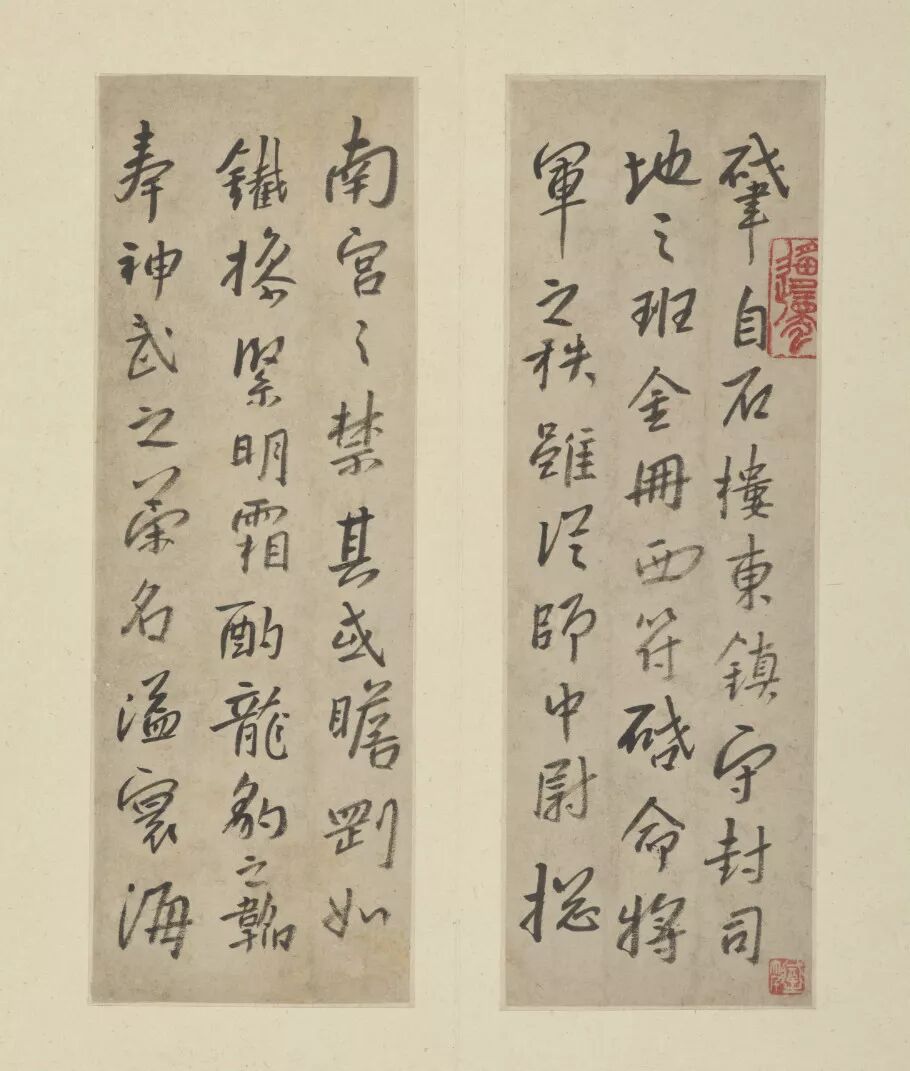 肇自石樓東鎮守封司
地之班金冊西符啓命將
軍之秩雖從師中尉捴
南宮之禁其或膽剛如
鐵操緊明霜酌龍豹之韜
奉神武之榮名溢寰海